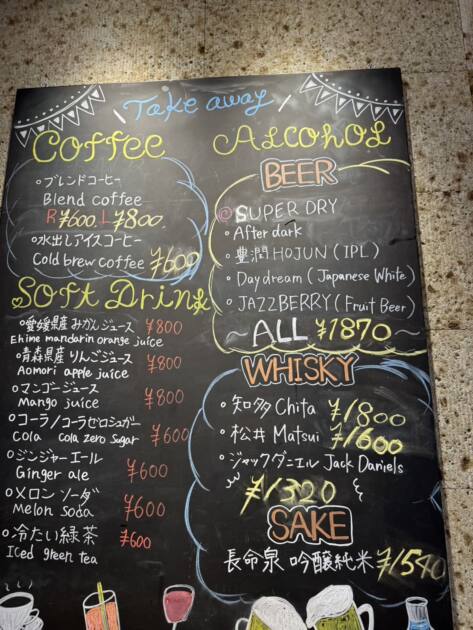 Take away
Coffee
ブレンドコーヒー
Blend coffee
R ¥600 L ¥800
水出しアイスコーヒー
Cold brew coffee ¥600
Soft Drink
愛媛県産 みかんジュース ¥800
Ehime mandarin orange juice
青森県産 りんごジュース ¥800
Aomori apple juice
マンゴージュース ¥800
Mango juice
コーラ/コーラゼロシュガー
Cola Cola zero sugar ¥600
ジンジャーエール
Ginger ale ¥600
メロンソーダ
Melon Soda ¥600
冷たい緑茶 ¥600
Iced green tea
ALCOHOL
BEER
SUPER DRY
After dark
豊潤 HOJUN (IPL)
Day dream (Japanese White)
JAZZBERRY (Fruit Beer)
~ALL ¥1870~
WHISKY
知多 Chita ¥1800
松井 Matsui ¥1600
ジャックダニエル Jack Daniels
¥1320
SAKE
長命泉 吟醸純米 ¥1540